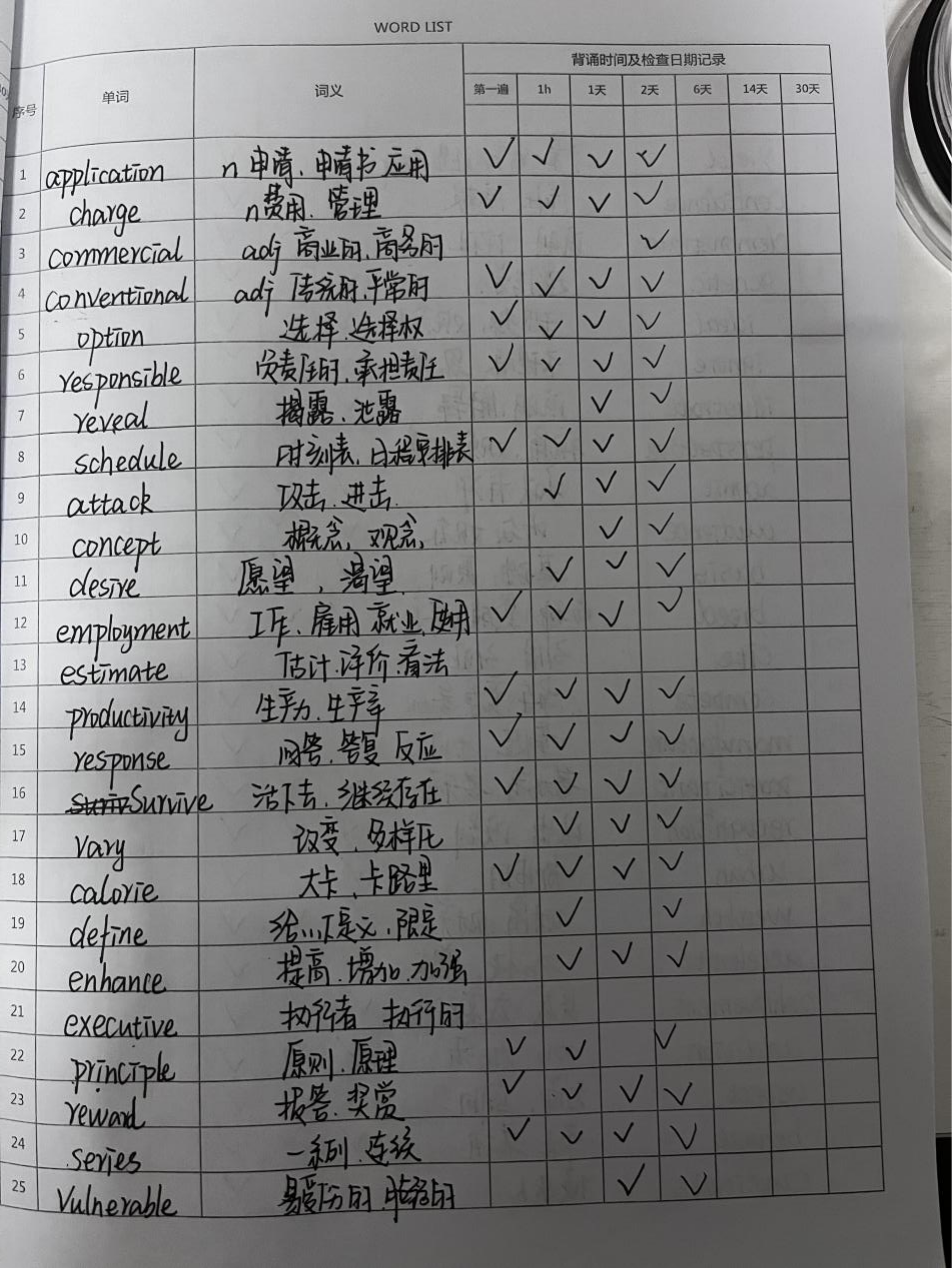 WORD LIST
序号 单词 词义 背诵时间及检查日期记录
第一遍 1h 1天 2天 6天 14天 30天
1 application n 申请、申请书 应用 ✓ ✓ ✓ ✓
2 charge n费用、管理 ✓ ✓ ✓ ✓
3 commercial adj 商业的、商务的 ✓
4 conventional adj 传统的、平常的 ✓ ✓ ✓ ✓
5 option 选择、选择权 ✓ ✓ ✓ ✓
6 responsible 负责任的、承担责任 ✓ ✓ ✓ ✓
7 reveal 揭露、泄露 ✓ ✓
8 schedule 时刻表、日程安排表 ✓ ✓ ✓ ✓
9 attack 攻击、进击. ✓ ✓ ✓
10 concept 概念、观念、 ✓ ✓
11 desire 愿望、渴望 ✓ ✓ ✓
12 employment 工作、雇用 就业、使用 ✓ ✓ ✓ ✓
13 estimate 估计、评价、看法
14 productivity 生产力、生产率 ✓ ✓ ✓ ✓
15 response 回答、答复 反应 ✓ ✓ ✓ ✓
16 Survive 活下去、继续存在 ✓ ✓ ✓ ✓
17 vary 改变、多样化 ✓ ✓ ✓
18 calorie 大卡、卡路里 ✓ ✓ ✓ ✓
19 define 给…下定义、限定 ✓ ✓
20 enhance 提高、增加、加强 ✓ ✓ ✓
21 executive 执行者 执行的
22 principle 原则、原理 ✓ ✓ ✓
23 reward 报答、奖赏 ✓ ✓ ✓ ✓
24 series 一系列、连续 ✓ ✓ ✓ ✓
25 Vulnerable 易受伤的、脆弱的 ✓ ✓